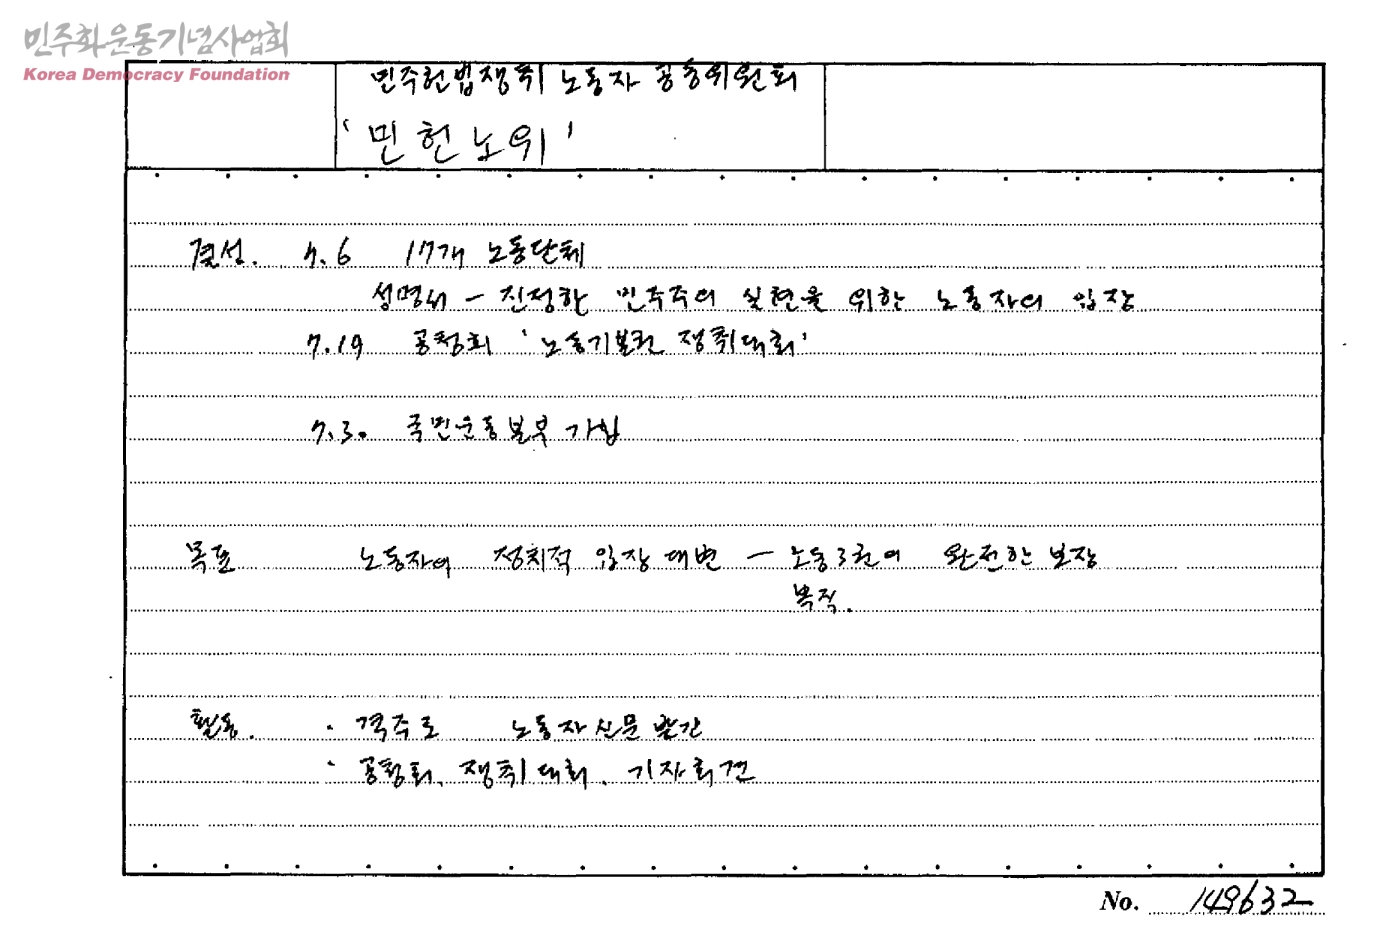 민주화운동기념사업회
Korea Democracy Foundation
민주헌법쟁취 노동자 공동위원회
'민헌노위'
결성. 7.6 17개 노동단체
성명서 - 진정한 민주주의 실현을 위한 노동자의 입장
7.19 공청회 '노동기본권 쟁취대회'
7.3. 국민운동본부 가입
목표 노동자의 정치적 입장 대변 - 노동3권의 완전한 보장
복직.
활동. · 격주로 노동자신문 발간
· 공청회, 쟁취대회, 기자회견
No. 149632